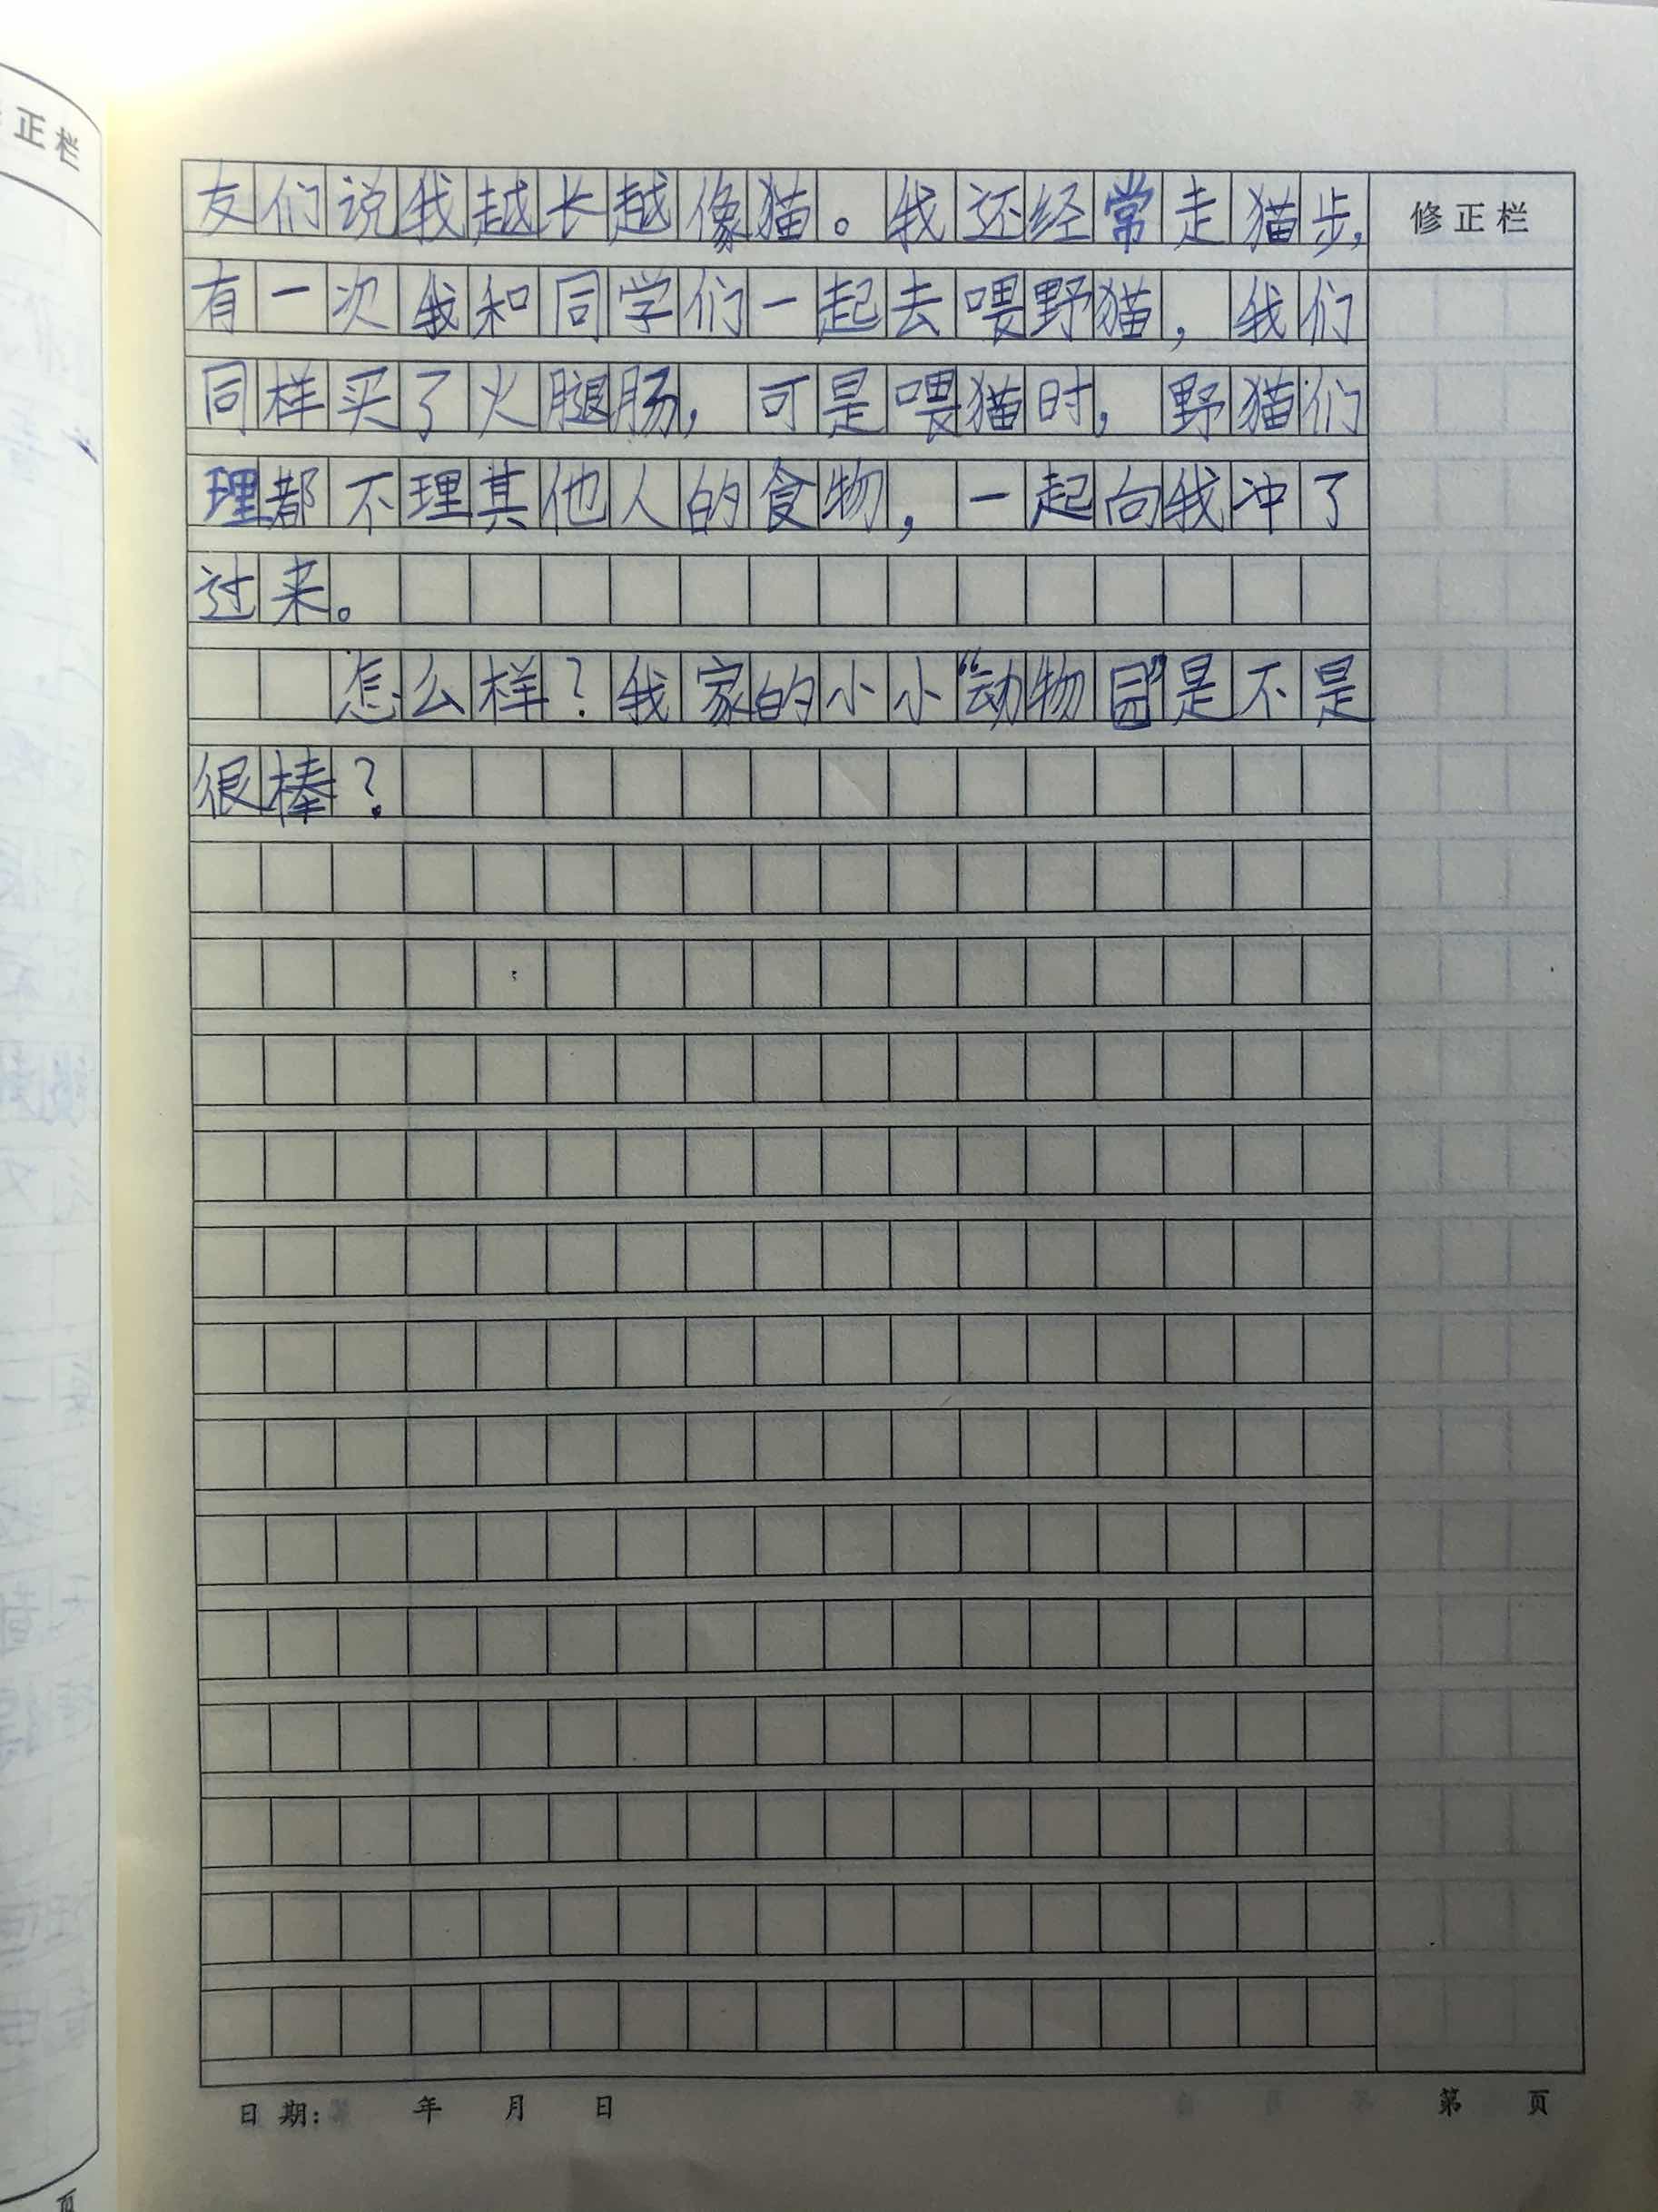 正栏
友们说我越长越像猫。我还经常走猫步，
修正栏
有一次我和同学们一起去喂野猫，我们
同样买了火腿肠，可是喂猫时，野猫们
理都不理其他人的食物，一起向我冲了
过来。
怎么样？我家的小小“动物园”是不是
很棒？
日期： 年 月 日
第 页
页